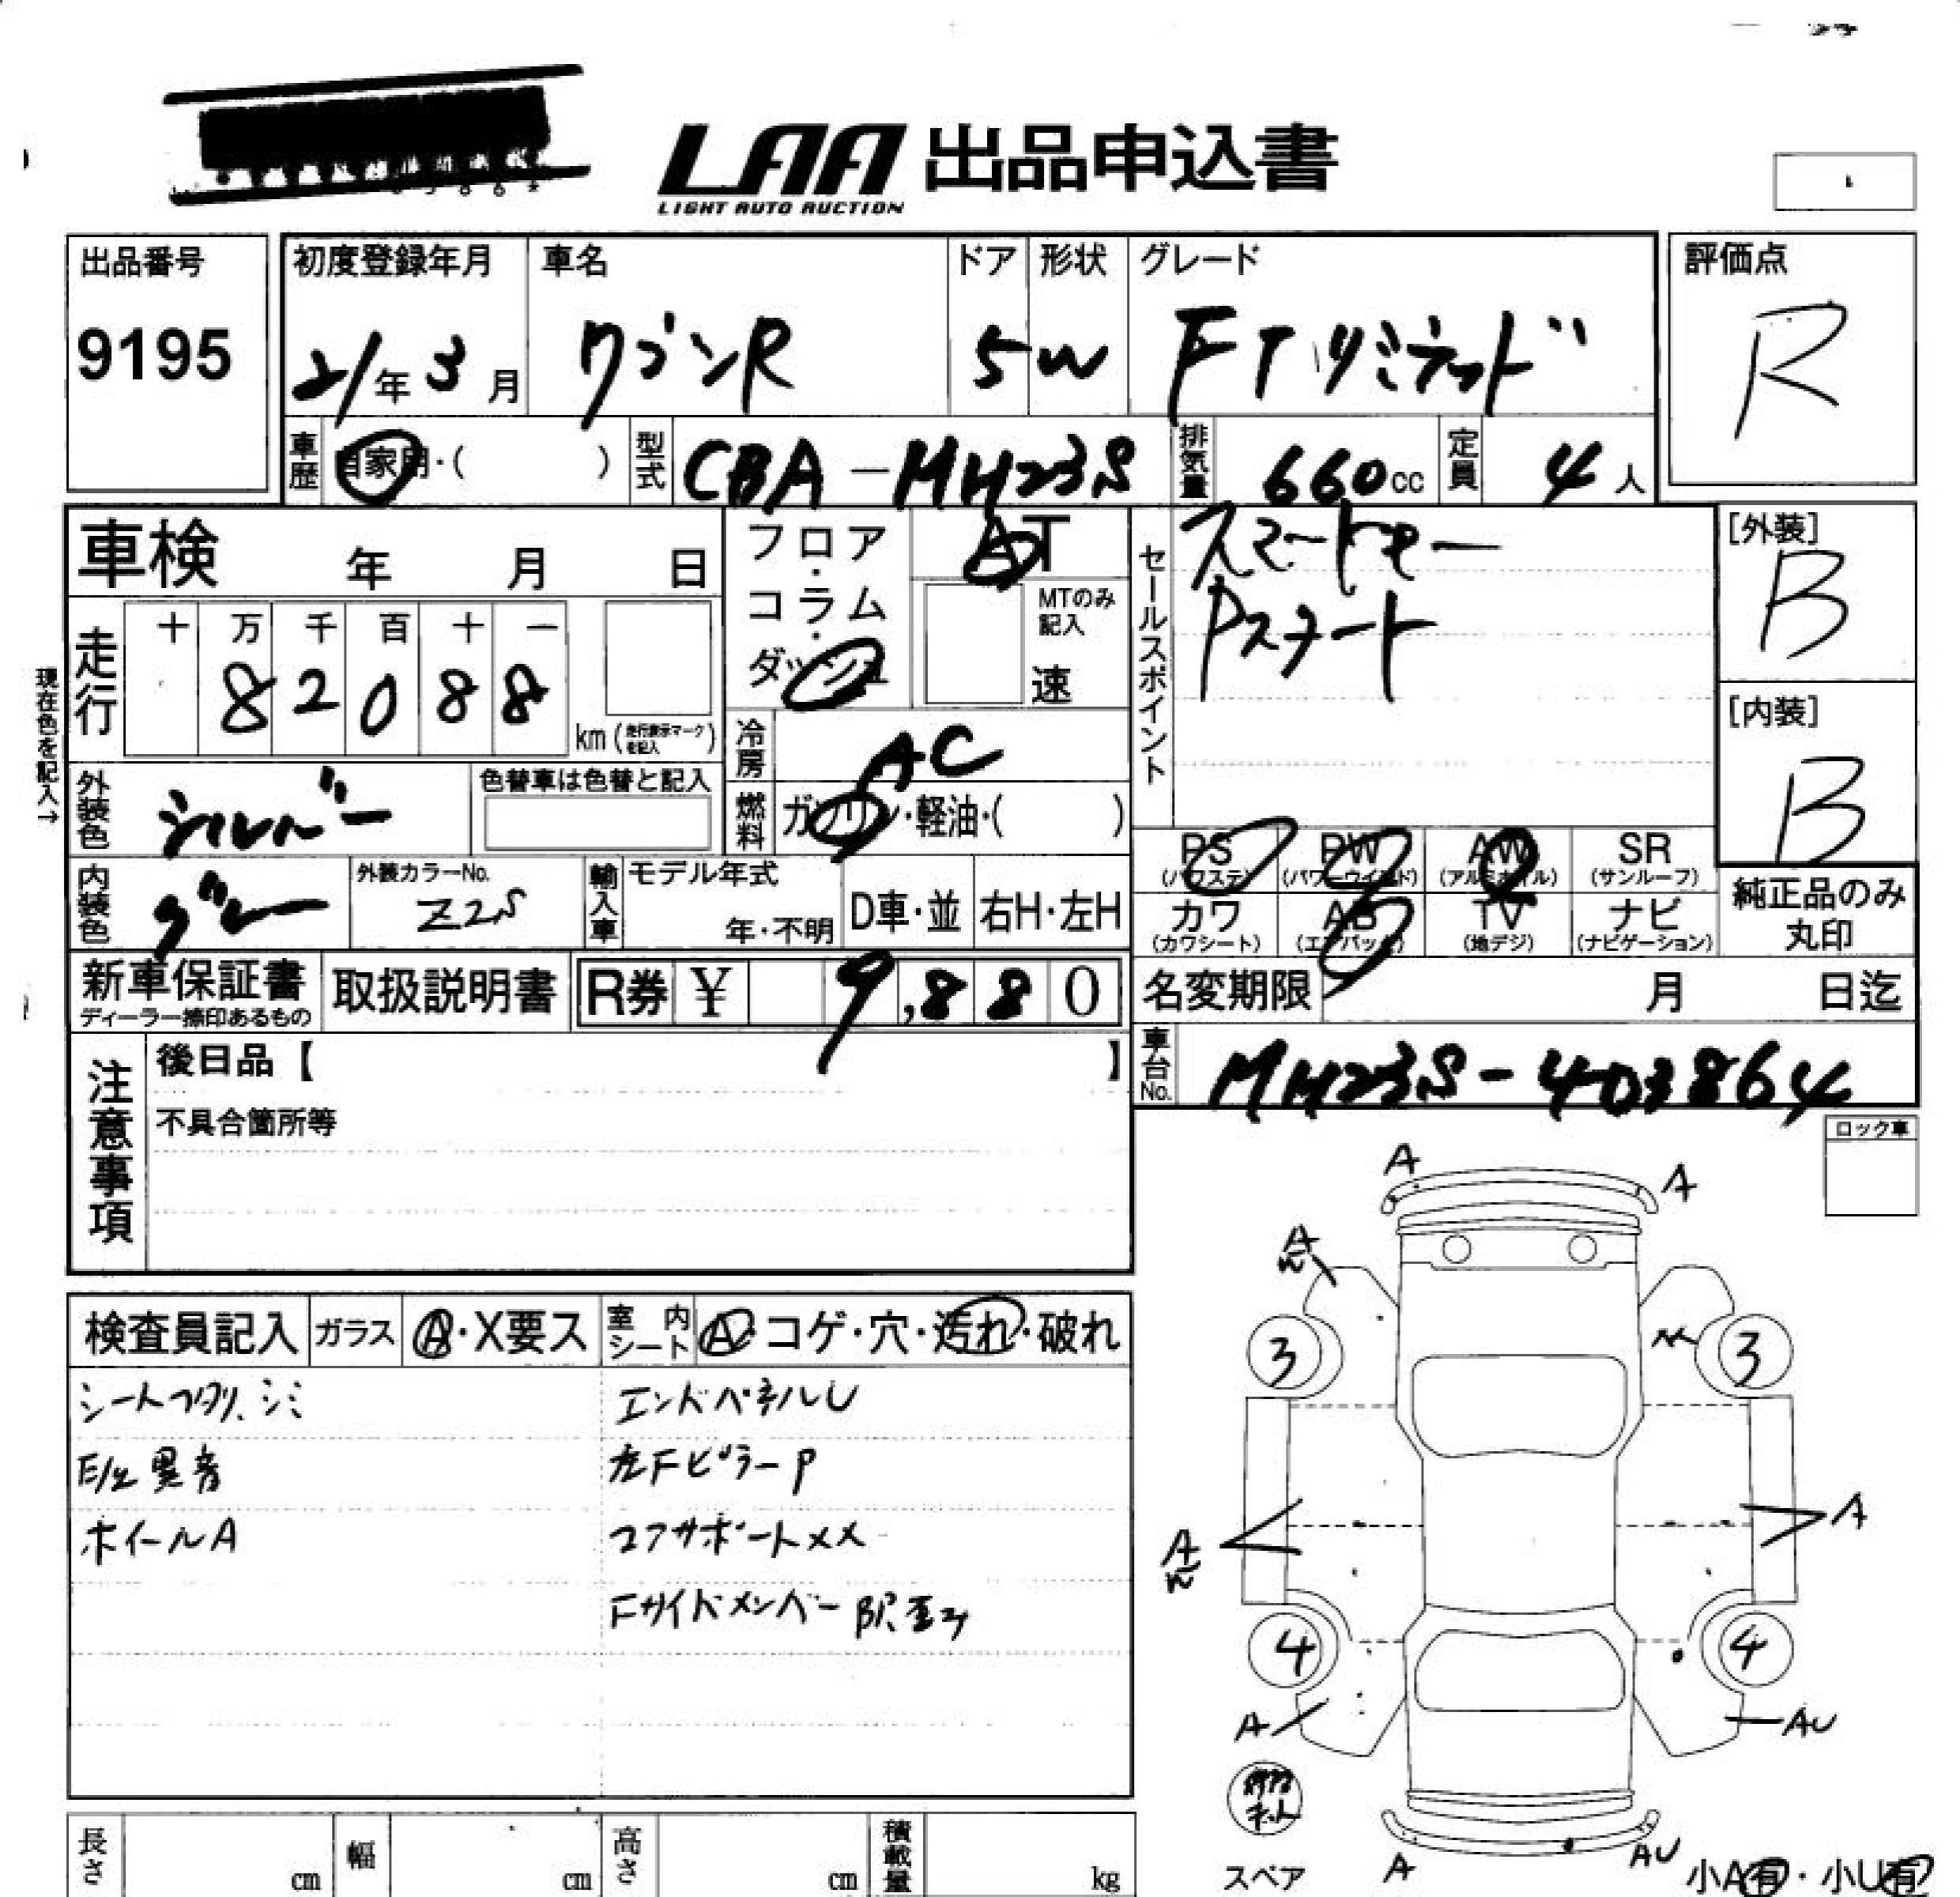 LAA 出品申込書
LIGHT AUTO AUCTION
出品番号
9195
初度登録年月
21年3月
車名
ワゴンR
ドア
5
形状
W
グレード
FTリミテッド
評価点
R
車歴
自家用・( )
型式
CBA-MH23S
排気量
660cc
定員
4人
車検 年 月 日
フロア・コラム・ダッシュ
AT
MTのみ記入
速
セールスポイント
スマートキー
Pスタート
[外装]
B
[内装]
B
現在色を記入→
走行
十 万 千 百 十 一
8 2 0 8 8
km(走行表示マークを記入)
冷房
AC
燃料
ガソリン・軽油・( )
外装色
シルバー
色替車は色替と記入
内装色
グレー
外装カラーNo.
Z2S
輸入車
モデル年式
年・不明
D車・並
右H・左H
PS PW AW SR
(パワステ) (パワーウインド) (アルミホイル) (サンルーフ)
カワ AB TV ナビ
(カワシート) (エアバック) (地デジ) (ナビゲーション)
純正品のみ
丸印
新車保証書
ディーラー捺印あるもの
取扱説明書
R券 ¥ 9,880
名変期限 月 日迄
車台No.
MH23S-403864
注意事項
後日品【 】
不具合箇所等
ロック車
検査員記入
ガラス
A・X要ス
室内シート
A・コゲ・穴・汚れ・破れ
シートヘタリ、シミ
E/g異音
ホイールA
エンドパネルU
左FピラーP
コアサポートXX
Fサイドメンバー 歪み
A
A
A
W
3
3
A
W
A
4
4
A
AU
スペア
A
AU
小A有・小U有
長さ cm
幅 cm
高さ cm
積載量 kg